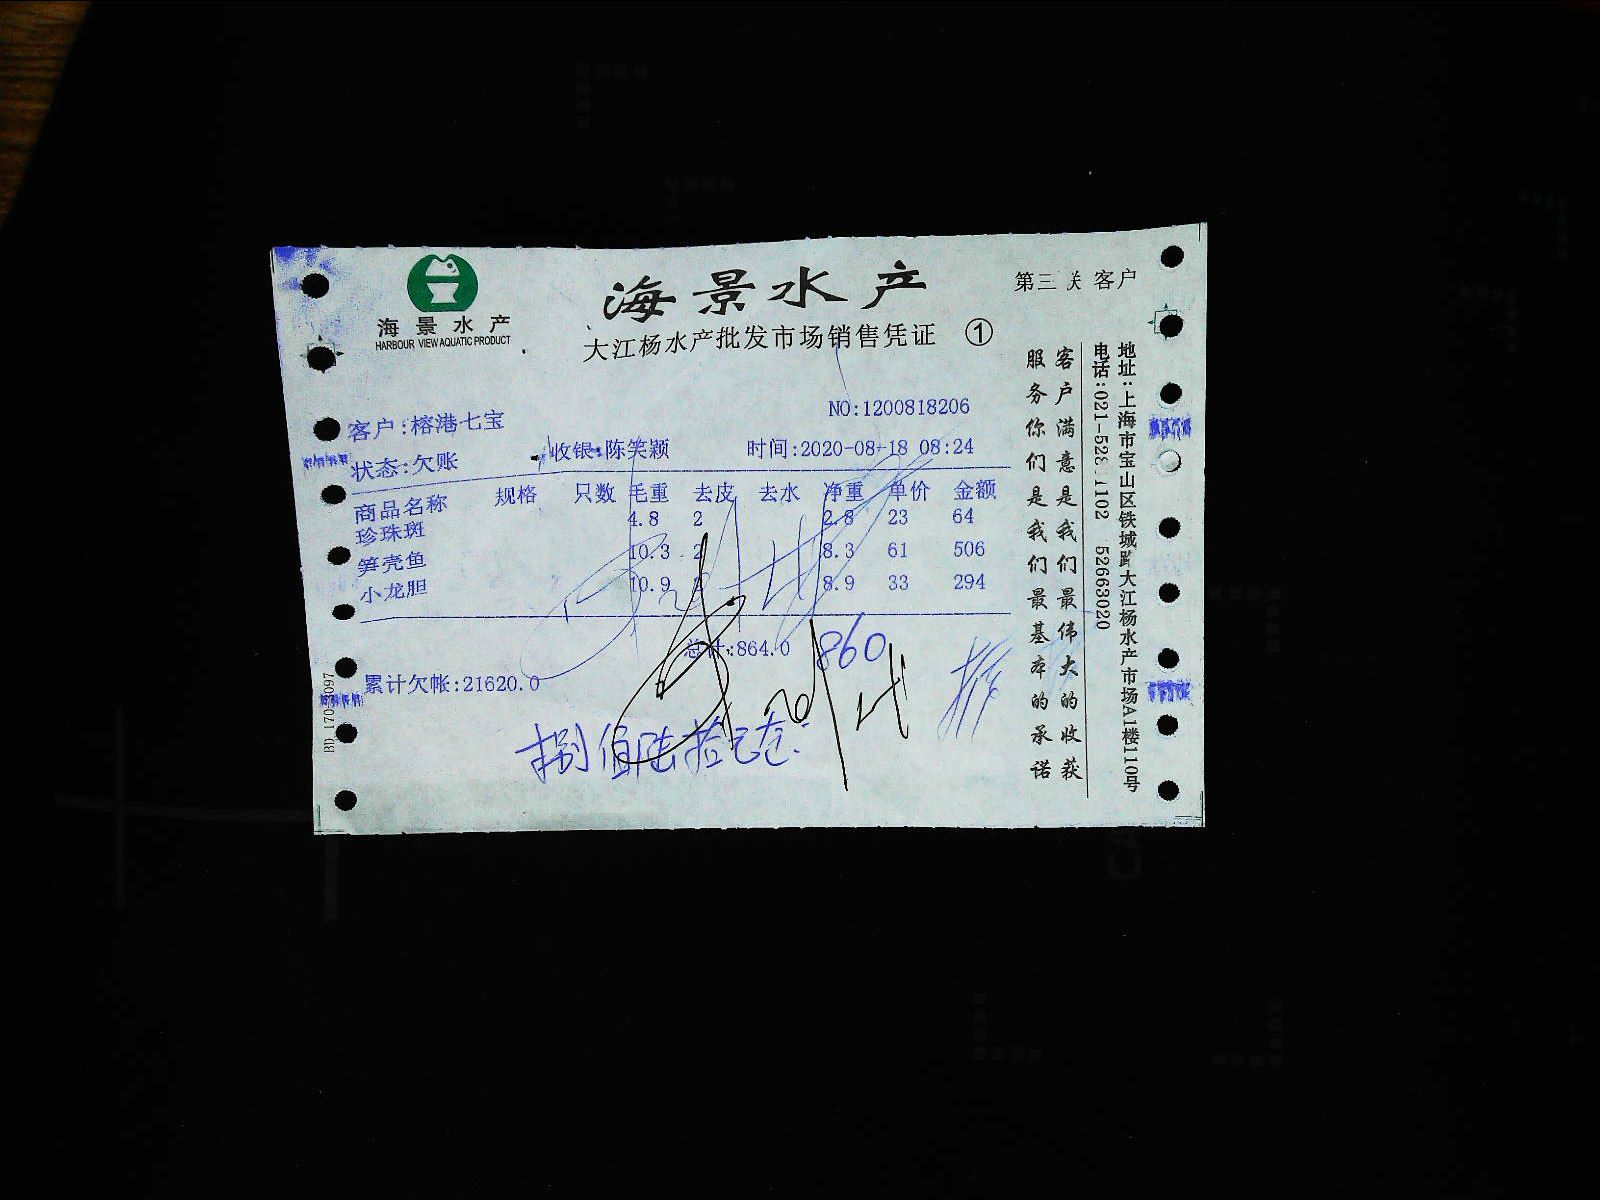 海景水产
HARBOUR VIEW AQUATIC PRODUCT
海景水产
大江杨水产批发市场销售凭证 ①
第三联 客户
NO:1200818206
客户:榕港七宝
状态:欠账 收银:陈笑颖 时间:2020-08-18 08:24
商品名称 规格 只数 毛重 去皮 去水 净重 单价 金额
珍珠斑 4.8 2 2.8 23 64
笋壳鱼 10.3 2 8.3 61 506
小龙胆 10.9 2 8.9 33 294
总计:864.0 860
累计欠帐:21620.0
捌佰陆拾元
客户满意是我们最伟大的收获
服务你们是我们最基本的承诺
地址:上海市宝山区铁城路大江杨水产市场A1楼110号
电话:021-528 1102 52663020